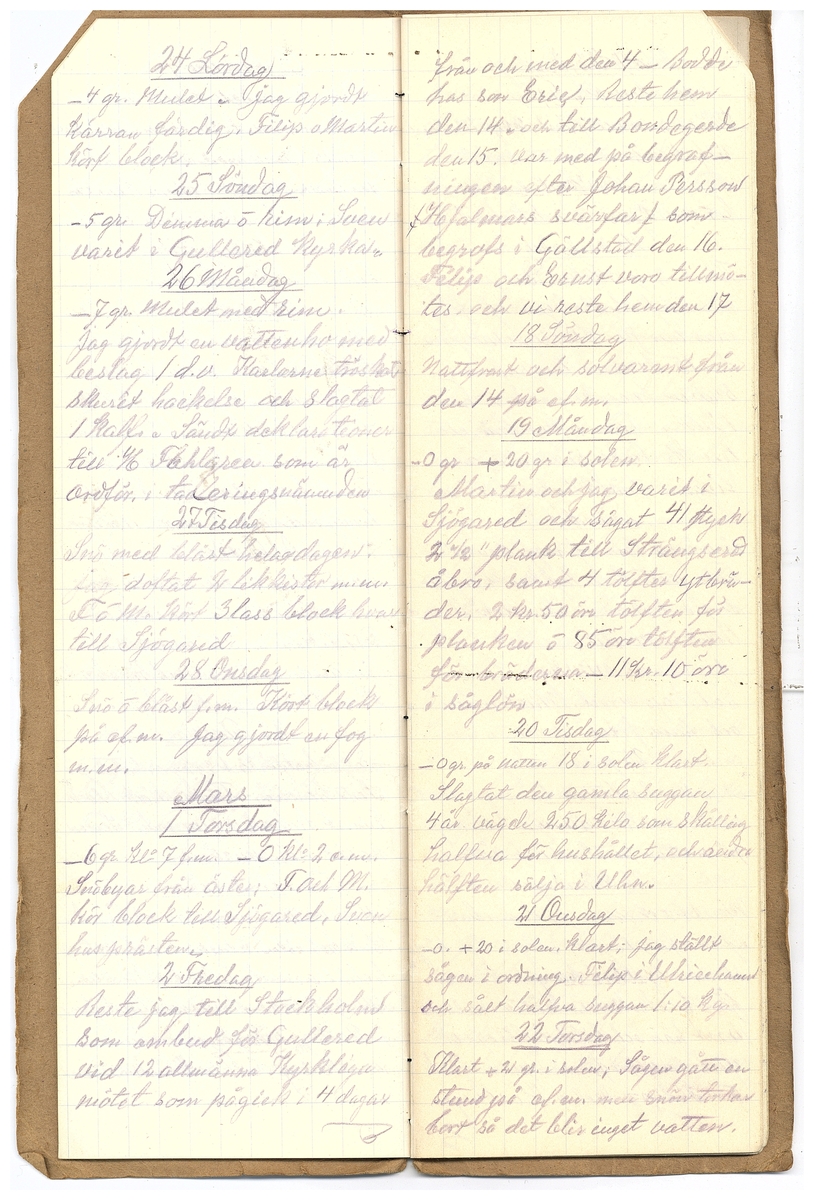 24 Lördag
-4 gr. Mulet. jag gjordt
kärran färdig. Filip o Martin
kört block.
25 Söndag
-5 gr. Dimma ö rim; Sven
varit i Gullered Kyrka.
26 Måndag
-7 gr. Mulet med rim.
Jag gjordt en vattenho med
beslag 1 d.v. Karlarne tröskat
skurit hackelse och slagtat
1 Kalf. Sändt deklarationer
till H som är
ordför. i taxeringsnämnden
27 Tisdag
Snö med bläst hela dagen.
jag doftat 2 likkistor m.m.
F ö M. Kört 3 lass block hvar
till Sjögared
28 Onsdag
Snö ö bläst f.m. Kört block
på ef.m. Jag gjordt en fog
m.m.
Mars
1 Torsdag
-6 gr. Kl: 7 f.m. -0 Kl: 2 e.m.
Snöbyar från öster; F. och M.
kör block till Sjögared. Sven
hus prästen.
2 Fredag
Reste jag till Stockholm
som ombud för Gullered
vid 12 allmänna Kyrkliga
mötet som pågick i 4 dagar
från och med den 4 - Bodde
hos son Eric, Reste hem
den 14. och till Bondegerde
den 15. var med på begraf-
ningen efter Johan Persson
(Hjalmars svärfar) som
begrofs i Gällstad den 16.
Filip och Ernst voro tillmö-
tes. och vi reste hem den 17
18 Söndag
Nattfrost och solvarmt från
den 14 på ef.m.
19 Måndag
-0 gr +20 gr i solen.
Martin och jag varit i
Sjögared och sågat 41 styck
2 1/2" plank till Strängsered
åbro, samt 4 tolfter ytbrä-
der. 2 kr. 50 öre tolften för
planken ö 85 öre tolften
för bräderna - 11 Kr. 10 öre
i såglön
20 Tisdag
-0 gr. på natten 18 i solen klart.
Slagtat den gamla suggan
4 år vägde 250 kilo som skall
halfva för hushållet, och andra
hälften sälja i Uhn.
21 Onsdag
-0. +20 i solen. klart; jag ställt
sågen i ordning. Filip i Ulricehamn
och sålt halfva suggan 1:10 Kg.
22 Torsdag
Klart +21 gr. i solen; Sågen gått en
stund på ef.m. men snön torkar
bort så det blir inget vatten.